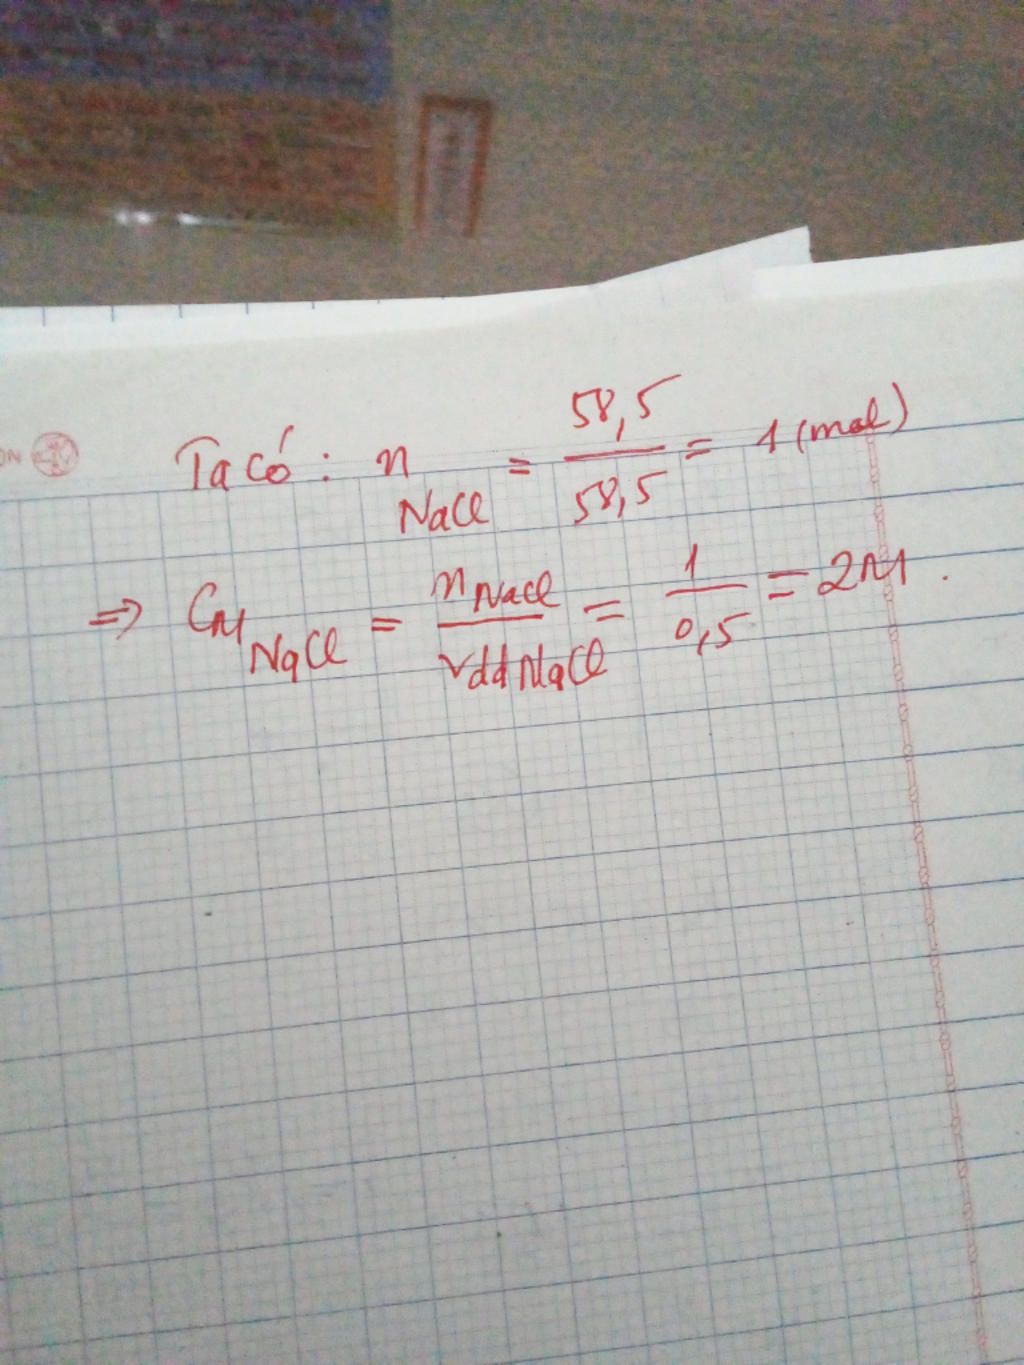 Ta có: n NaCl = 58,5 / 58,5 = 1 (mol)
=> CM NaCl = n NaCl / Vdd NaCl = 1 / 0,5 = 2M.
ON